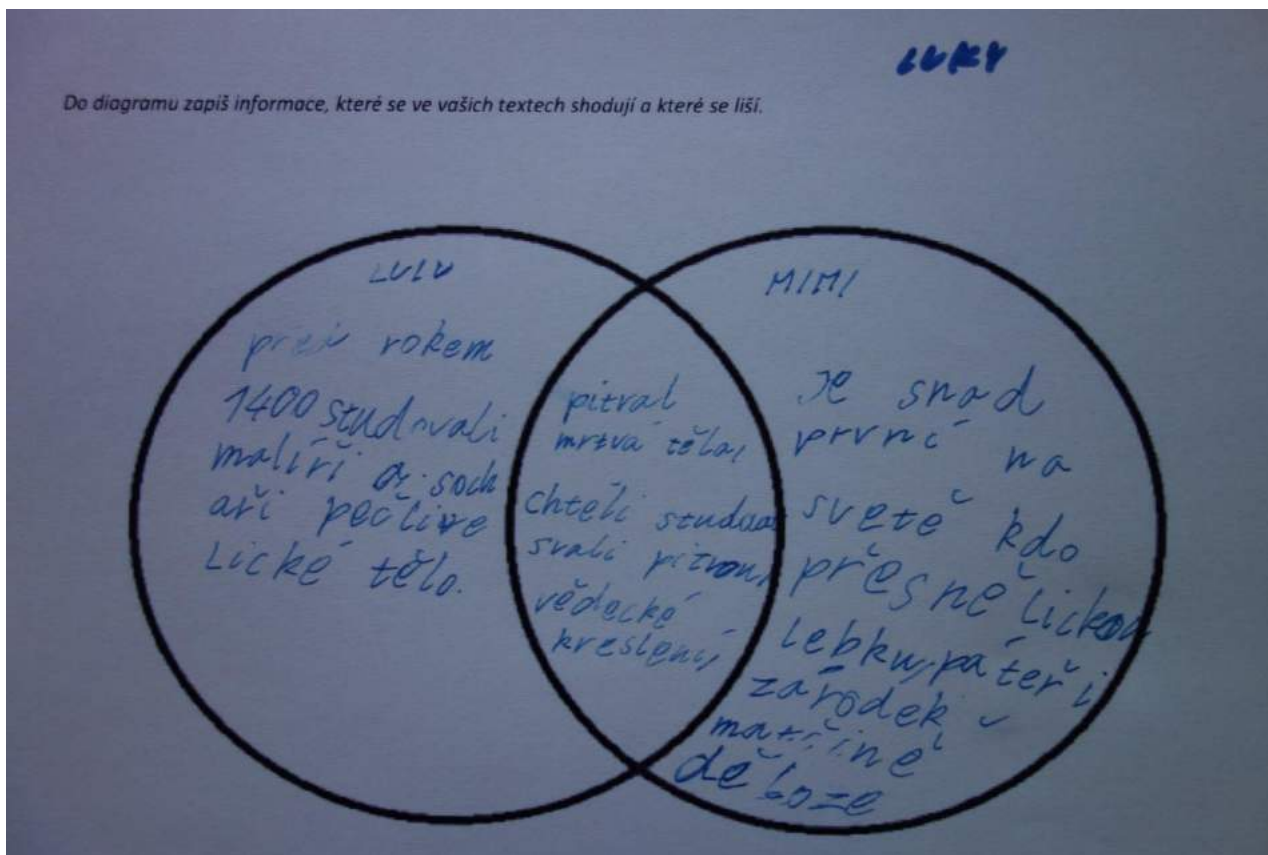 LUKY
Do diagramu zapiš informace, které se ve vašich textech shodují a které se liší.
LULU
před rokem
1400 studovali
malíři a soch
aři pečlivě
Lické tělo.
pitval
mrtvá těla,
chtěli studovat
svali pitvou,
vědecké
kreslení,
MIMI
Je snad
první na
svetě kdo
přesně lickou
lebku, páteř i
zárodek v
matčině
děloze